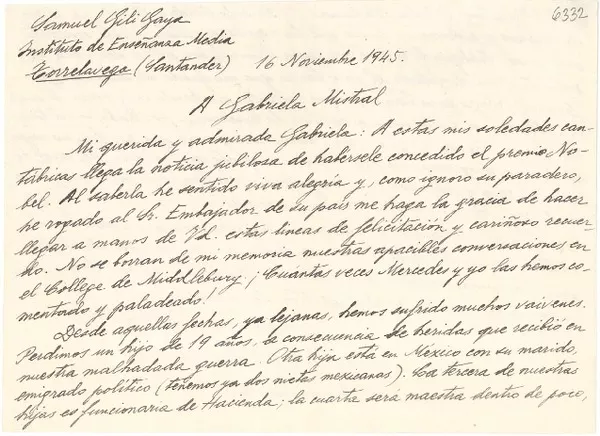 Samuel Gili Gaya
6332
Instituto de Enseñanza Media
Torrelavega (Santander) 16 Noviembre 1945.
A Gabriela Mistral
Mi querida y admirada Gabriela: A estas mis soledades can-
tábricas llega la noticia jubilosa de habérsele concedido el premio No-
bel. Al saberla he sentido viva alegría y, como ignoro su paradero,
he rogado al Sr. Embajador de su país me haga la gracia de hacer
llegar a manos de Vd. estas líneas de felicitación y cariñoso recuer-
do. No se borran de mi memoria nuestras apacibles conversaciones en
el College de Middlebury. ¡Cuantas veces Mercedes y yo las hemos co-
mentado y paladeado!
Desde aquellas fechas, ya lejanas, hemos sufrido muchos vaivenes.
Perdimos un hijo de 19 años, a consecuencia de heridas que recibió en
nuestra malhadada guerra. Otra hija está en México con su marido,
emigrado político (tenemos ya dos nietas mexicanas). La tercera de nuestras
hijas es funcionaria de Hacienda; la cuarta será maestra dentro de poco,